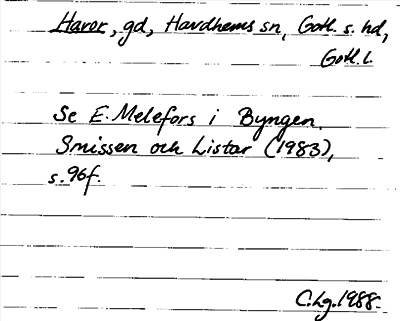 Haror, gd, Havdhems sn, Gotl. s. hd,
Gotl. l.
Se E. Melefors i Byngen.
Smissen och Listar (1983),
s. 96f.
C. Lg. 1988.